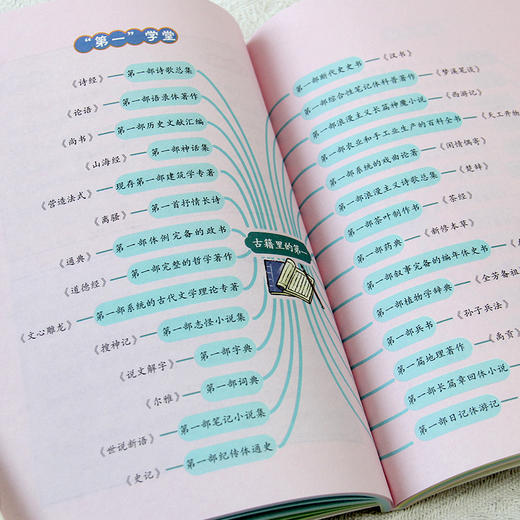 “第一”学堂
《诗经》 第一部诗歌总集
《论语》 第一部语录体著作
《尚书》 第一部历史文献汇编
《山海经》 第一部神话集
《营造法式》 现存第一部建筑学专著
《离骚》 第一首抒情长诗
《通典》 第一部体例完备的政书
《道德经》 第一部完整的哲学著作
《文心雕龙》 第一部系统的古代文学理论专著
《搜神记》 第一部志怪小说集
《说文解字》 第一部字典
《尔雅》 第一部词典
《世说新语》 第一部笔记小说集
《史记》 第一部纪传体通史
古籍里的第一
第一部断代史史书 《汉书》
第一部综合性笔记体科普著作 《梦溪笔谈》
第一部浪漫主义长篇神魔小说 《西游记》
第一部农业和手工业生产的百科全书 《天工开物
第一部系统的戏曲论著 《闲情偶寄》
第一部浪漫主义诗歌总集 《楚辞》
第一部茶叶制作书 《茶经》
第一部药典 《新修本草》
第一部叙事完备的编年体史书
第一部植物学辞典 《全芳备祖
第一部兵书 《孙子兵法》
第一篇地理著作 《禹贡》
第一部长篇章回体小说
第一部日记体游记